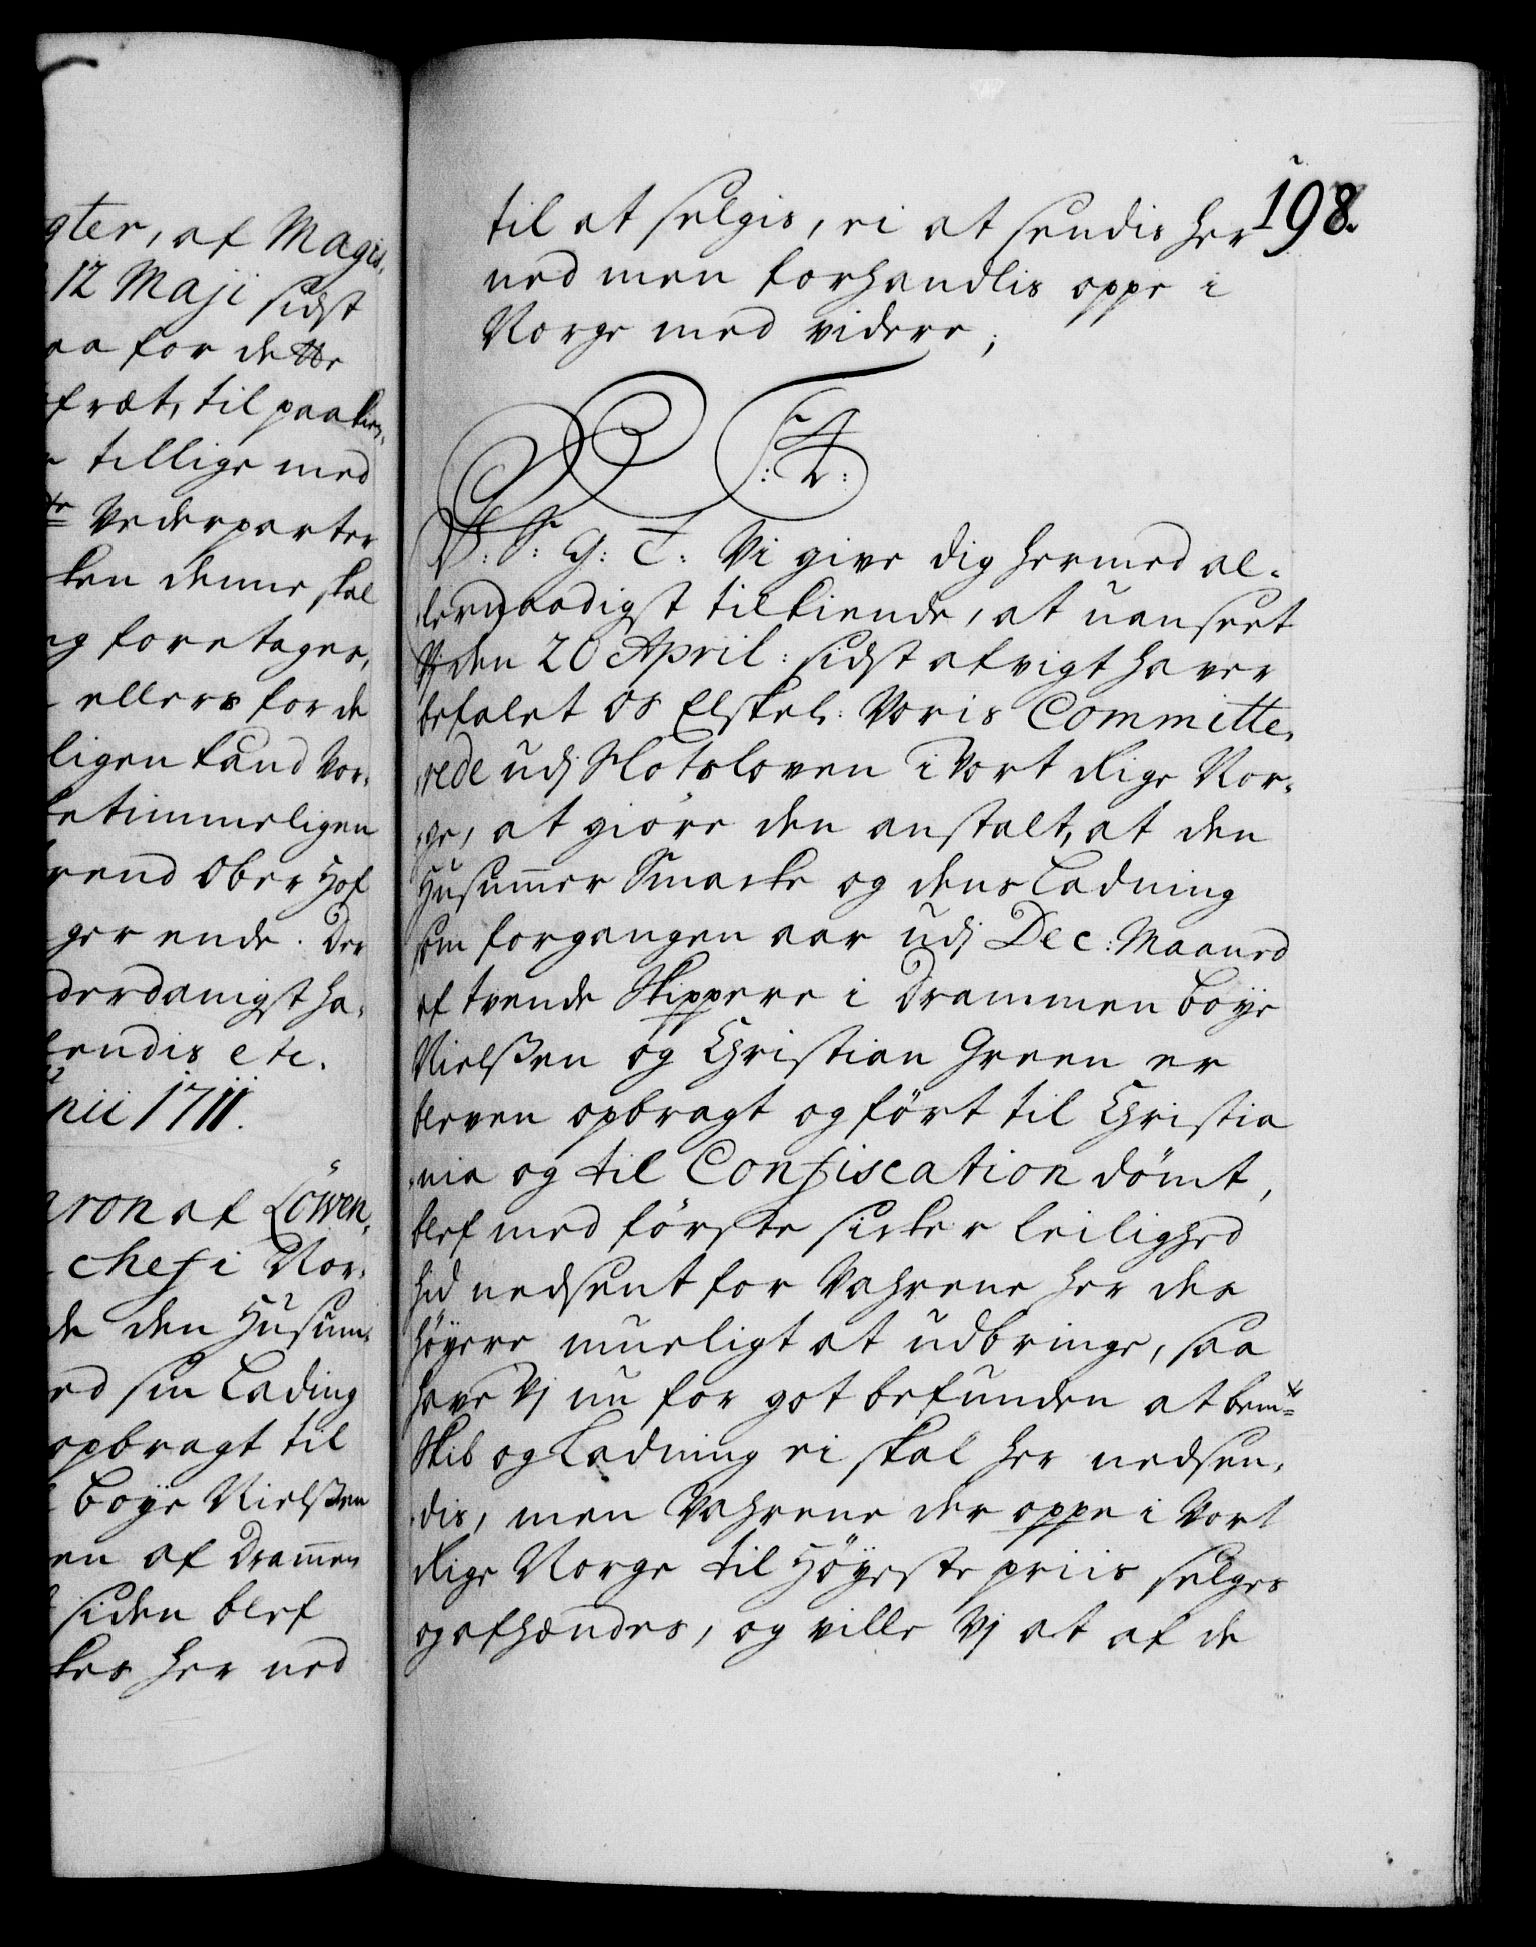 gter, af Magis,
12 Maji sidst
aa for dette
fræt, til paakien,
tillige med
Vederparter
ken denne skal
ng foretages,
ellers for de
ligen kand Vor,
betimmeligen
rend Ober Hof
ger ende. Der
derdanigst ha,
sendis etc.
nii 1711.
aron af Löwen,
chef i Nor,
de den Husum,
ed sin Lading
opbragt til
Boye Nielsßen
en af Dramen
siden blef
kes her ned
198.
til at selgis, ei at sendis her
ned men forhandlis oppe i
Norge med videre;
F4
: 2 :
V: S: G: T: Vi give dig hermed al,
lernaadigst tilkiende, at uanseet
Vj den 20 April: sidst afvigt haver
befalet os Elskel: Voris Committe,
rede udj Slotsloven i Vort Rige Nor,
ge, at giöre den anstalt, at den
Husumer Smacke og dens Ladning
som forgangen aar udj Dec: Maaned
af tvende Skippere i Drammen Boye
Nielsßen og Christian Green er
bleven opbragt og fört til Christia
nia og til Confiscation dömt,
blef med förste sicker leilighed
hid nedsent for Vahrene her des
höyere mueligt at udbringe, saa
have Vj nu for got befunden at bemte
Skib og Ladning ei skal her nedsen,
dis, men Vahrene der oppe i Vort
Rige Norge til Höyeste priis selges
og afhændes, og ville Vj at af de